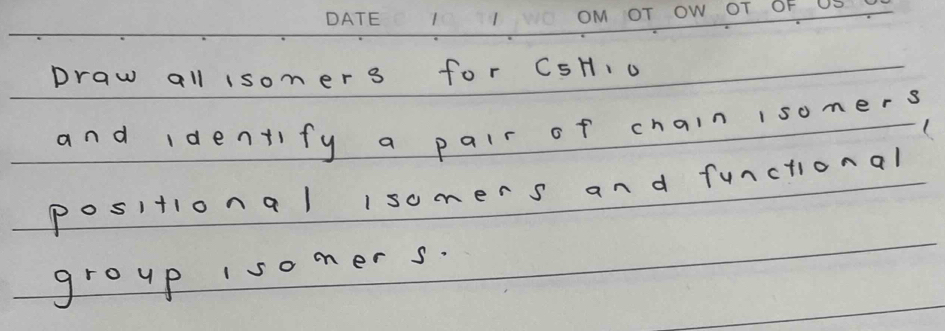 DATE / / OM OT OW OT OF
Draw all isomers for C5H10
and identify a pair of chain isomers,
positional isomers and functional
group isomers.